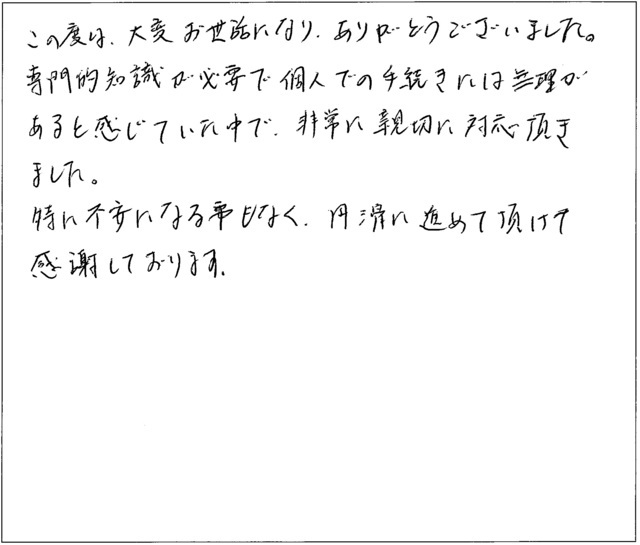 この度は、大変お世話になり、ありがとうございました。
専門的知識が必要で個人での手続きには無理が
あると感じていた中で、非常に親切に対応頂き
ました。
特に不安になる事もなく、円滑に進めて頂けて
感謝しております。